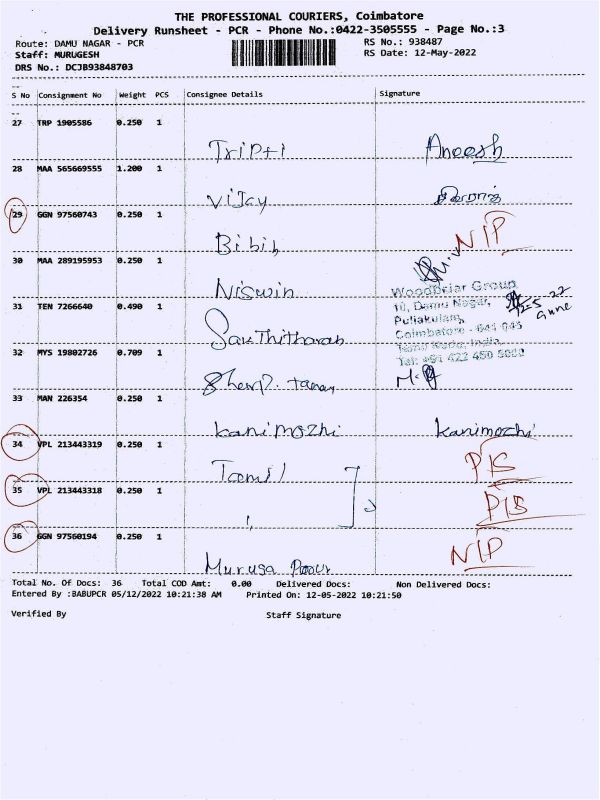 THE PROFESSIONAL COURIERS, Coimbatore
Delivery Runsheet - PCR - Phone No.:0422-3505555 - Page No.:3
Route: DAMU NAGAR - PCR
RS No.: 938487
Staff: MURUGESH
RS Date: 12-May-2022
DRS No.: DCJB93848703
S No Consignment No Weight PCS Consignee Details Signature
27 TRP 1905586 0.250 1
Tripti Aneesh
28 MAA 565669555 1.200 1
Vijay
29 GGN 97560743 0.250 1
Bibih NIP
30 MAA 289195953 0.250 1
Niswin
Woodbriar Group
31 TEN 7266640 0.490 1
10, Damu Nagar,
Puliakulam,
Coimbatore - 641 045
Tamil Nadu, India.
Sakthitharan
32 MYS 19802726 0.709 1
Tel: +91 422 450 5000
33 MAN 226354 0.250 1
Kanimozhi Kanimozhi
34 VPL 213443319 0.250 1
Tamil P/S
35 VPL 213443318 0.250 1
P/S
36 GGN 97560194 0.250 1
NIP
Total No. Of Docs: 36 Total COD Amt: 0.00 Delivered Docs: Non Delivered Docs:
Entered By :BABUPCR 05/12/2022 10:21:38 AM Printed On: 12-05-2022 10:21:50
Verified By Staff Signature